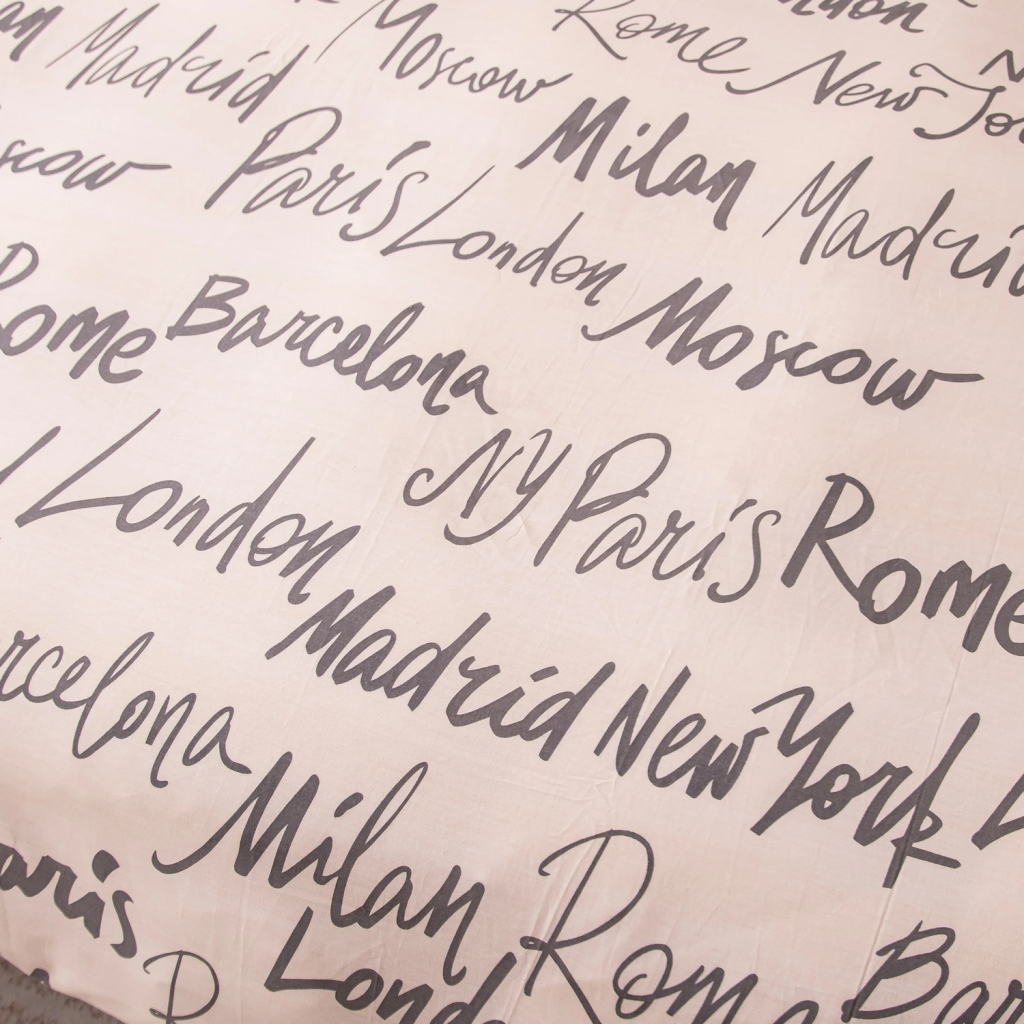 ndon
an Madrid Moscow Rome New Yo
scow Paris London Milan Madrid
Rome Barcelona Moscow
London NY Paris Rome
rcelona Madrid New York L
aris Milan Rome Bar
Lond